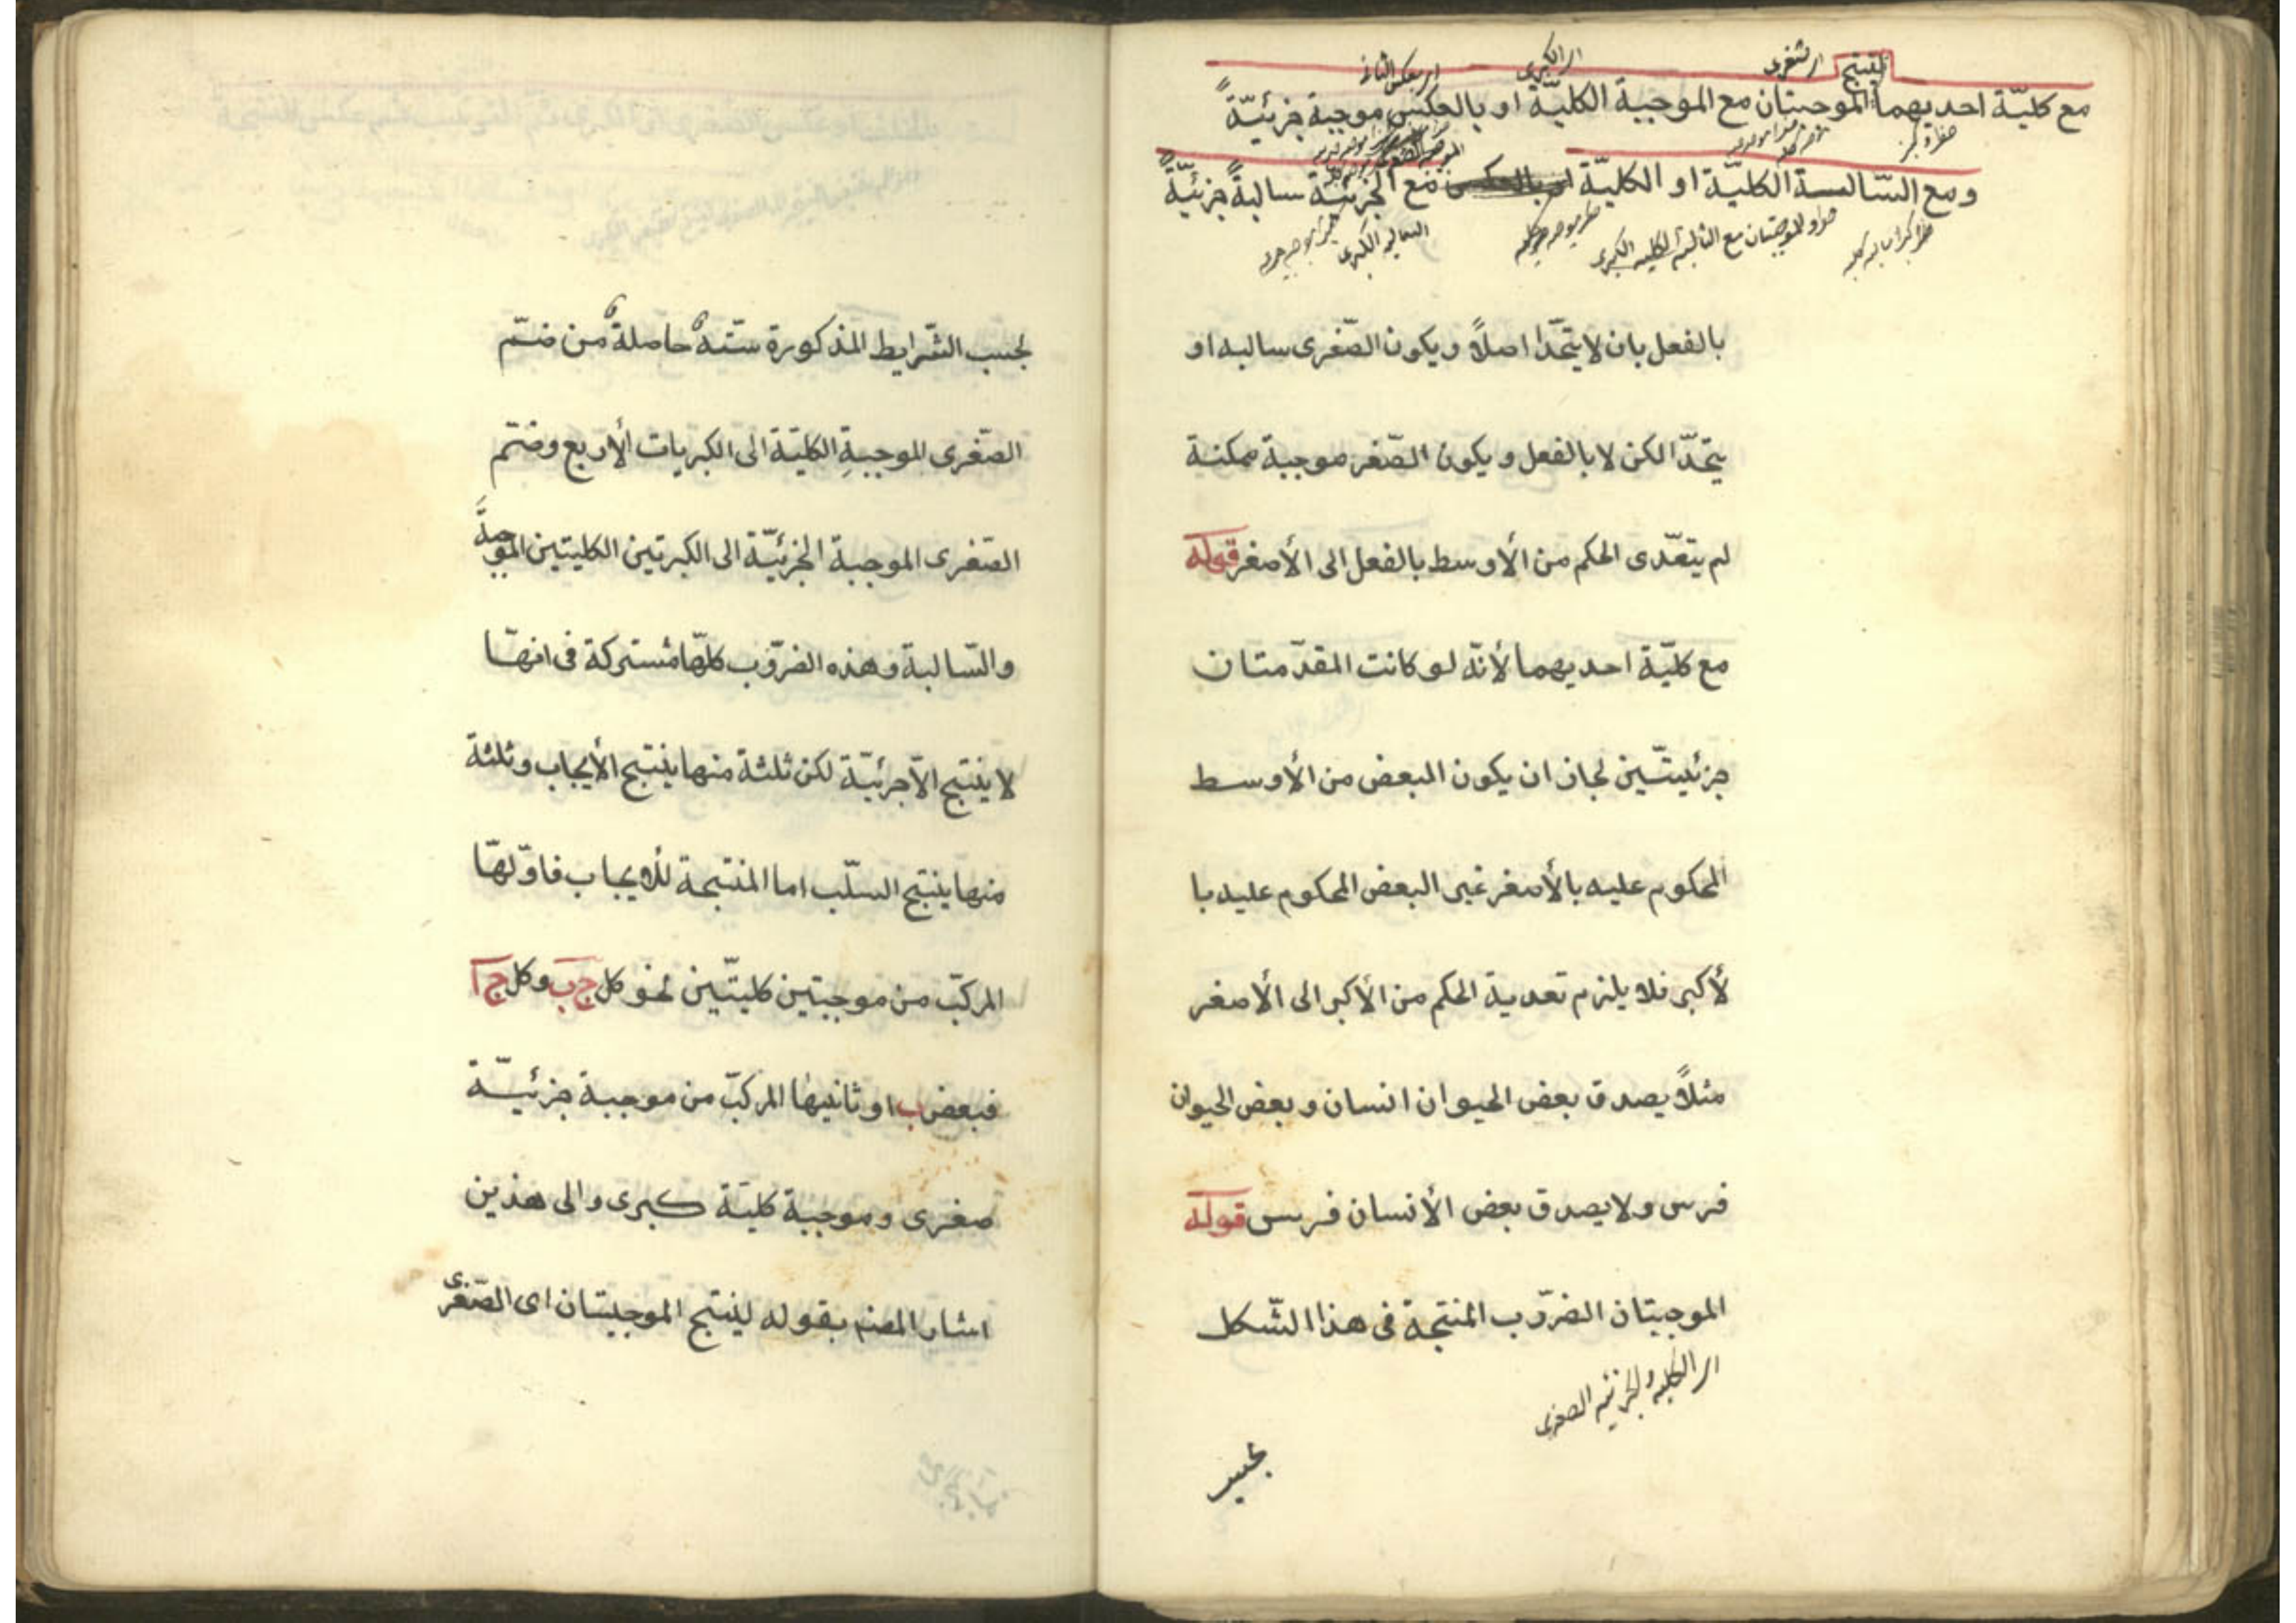 لينتج
اى الصغرى
اى الكبرى
اى بعكس الثانى
مع كليّة احديهما الموجبتان مع الموجبة الكليّة او بالعكس موجبة جزئيّةً
ومع السّالبة الكليّة او الكليّة مع الجزئيّة سالبةً جزئيّةً
او الموجبتان مع السالبة الكلية الكبرى
السالبة الكبرى
بالفعل بان لا يتحّدا اصلاً ويكون الصّغرى سالبه او
يتحّدا لكن لا بالفعل ويكون الصّغر موجبة ممكنة
لم يتعّدى الحكم من الأوسط بالفعل الى الأصغر قوله
مع كليّة احديهما لأنّه لو كانت المقدّمتان
جزئيتّين لجاز ان يكون البعض من الأوسط
المحكوم عليه بالأصغر غير البعض المحكوم عليه با
لأكبر فلا يلزم تعدية الحكم من الأكبر الى الأصغر
مثلاً يصدق بعض الحيوان انسان وبعض الحيوان
فرس ولا يصدق بعض الأنسان فرس قوله
الموجبتان الضرّوب المنتجة فى هذا الشّكل
اى الكلية والجزئية الصغرى
بحسب
بحسب الشّرايط المذكورة ستّة حاصلة من ضّم
الصّغرى الموجبةِ الكليّة الى الكبريات الأربع وضّم
الصّغرى الموجبة الجزئيّة الى الكبرتين الكليتين الموجبةَ
والسّالبة وهذه الضرّوب كلهّا مشتركة فى انهّا
لا ينتج الاّ جرئيّة لكن ثلثة منها ينتج الأيجاب وثلثة
منها ينتج السلّب اما المنتجة للأيجاب فاوّلهّا
المركبّ من موجبتين كليتّين نحو كل ج ب وكل ج ا
فبعض ب ا وثانيها المركبّ من موجبة جزئيّة
صغرى وموجبة كليّة كبرى والى هذين
اشار المصنم بقوله لينتج الموجبتان اى الصّغرى